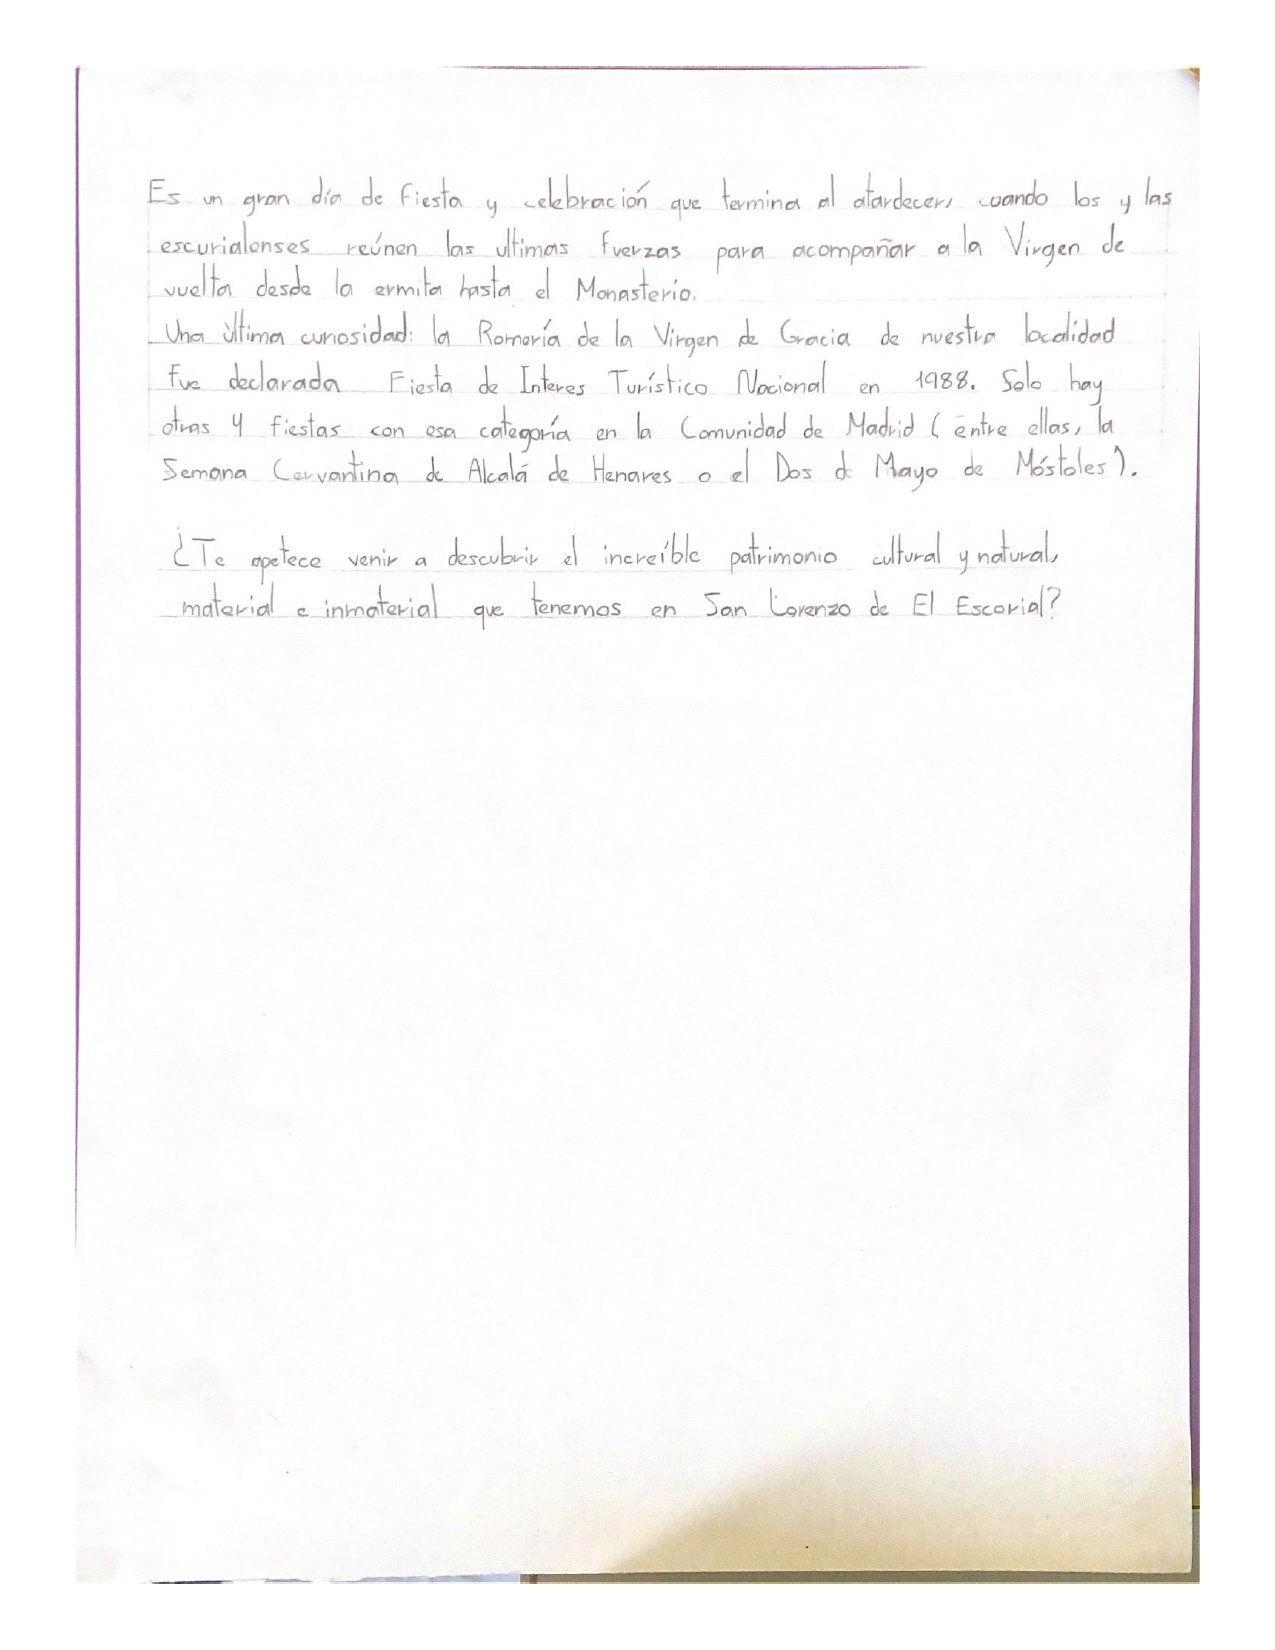 Es un gran día de fiesta y celebración que termina al atardecer, cuando los y las
escurialenses reúnen las ultimas fuerzas para acompañar a la Virgen de
vuelta desde la ermita hasta el Monasterio.
Una última curiosidad: la Romería de la Virgen de Gracia de nuestra localidad
fue declarada Fiesta de Interes Turístico Nacional en 1988. Solo hay
otras 4 fiestas con esa categoría en la Comunidad de Madrid (entre ellas, la
Semana Cervantina de Alcalá de Henares o el Dos de Mayo de Móstoles).
¿Te apetece venir a descubrir el increíble patrimonio cultural y natural,
material e inmaterial que tenemos en San Lorenzo de El Escorial?